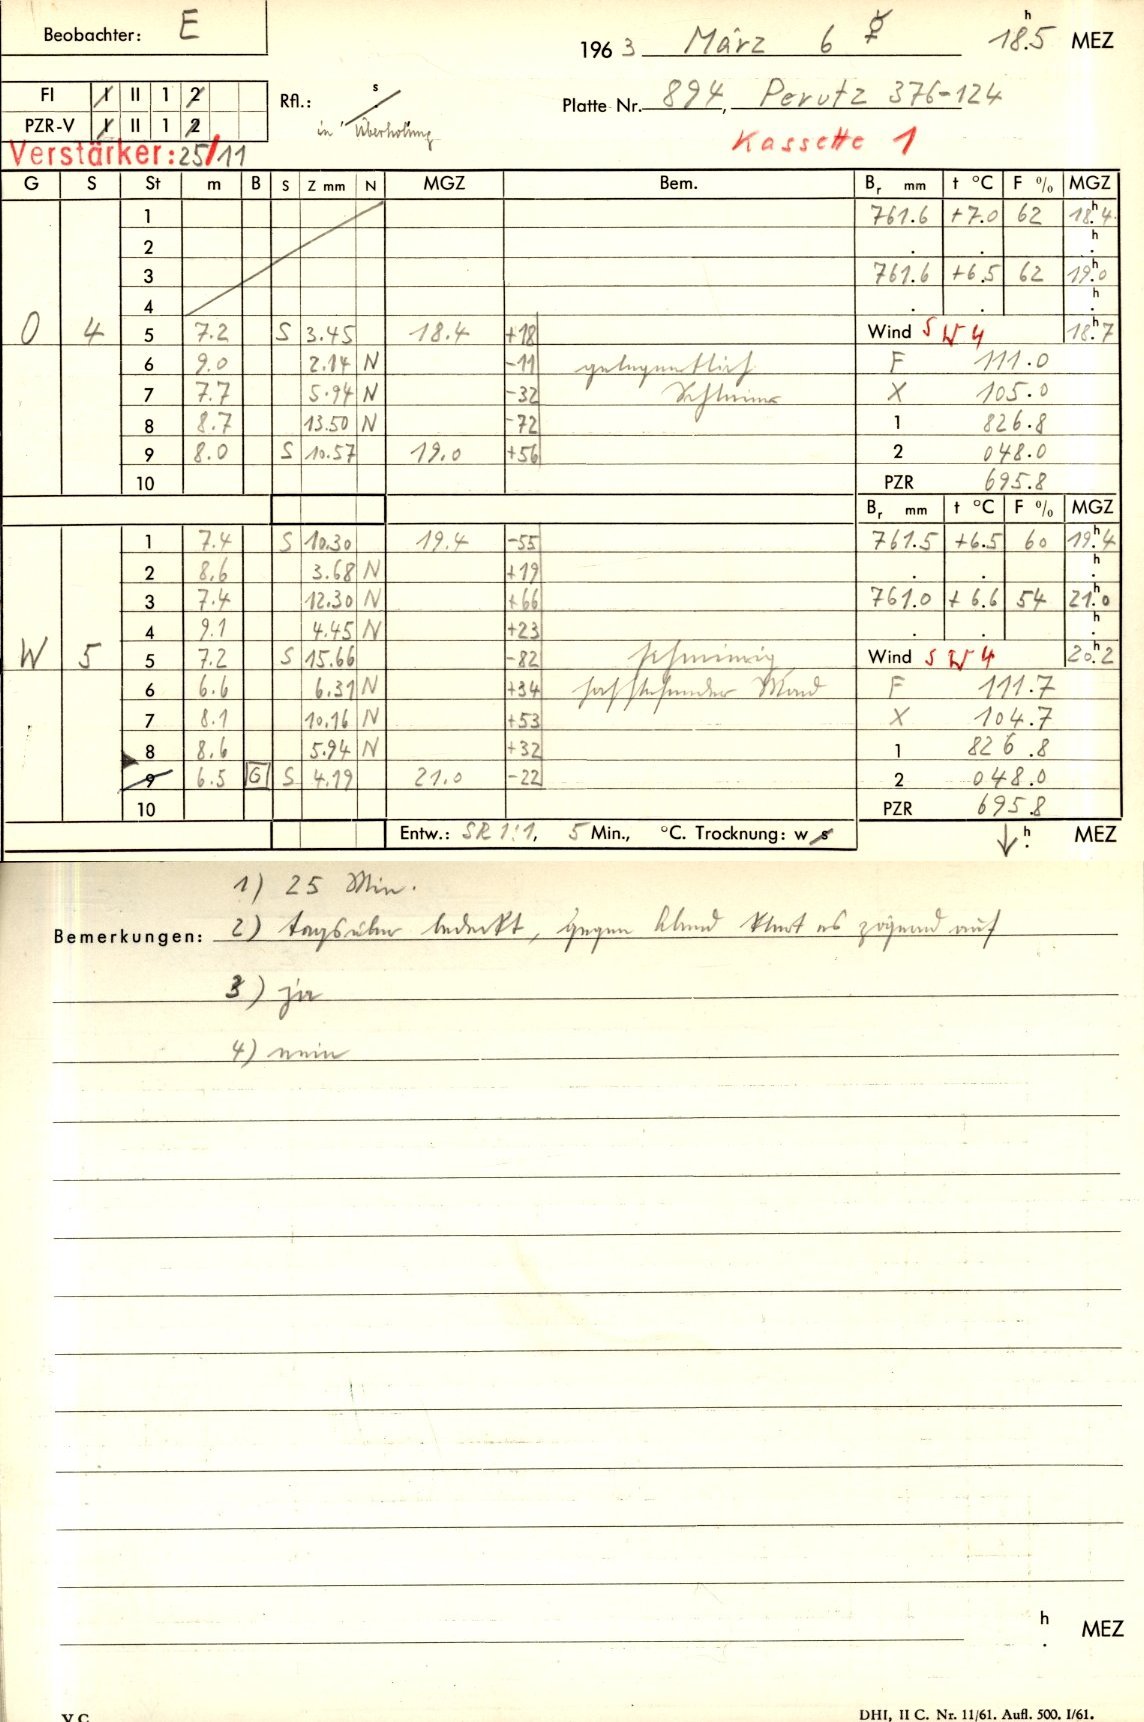 Beobachter: E
1963 März 6 ☿ 18.5 h MEZ
FI I II 1 2
PZR-V I II 1 2
Rfl.: s
in Überholung
Platte Nr. 894, Perutz 376-124
Kassette 1
Verstärker: 25/11
G S St m B S Z mm N MGZ Bem. Br mm t °C F % MGZ
1 761.6 +7.0 62 18.4 h
2 . . h .
3 761.6 +6.5 62 19.0 h
4 . . h .
O 4 5 7.2 S 3.45 18.4 +18 Wind SW 4 18.7 h
6 9.0 2.14 N -11 gelegentlich F 111.0
7 7.7 5.94 N -32 X 105.0
8 8.7 13.50 N -72 1 826.8
9 8.0 S 10.57 19.0 +56 2 048.0
10 PZR 695.8
Br mm t °C F % MGZ
1 7.4 S 10.30 19.4 -55 761.5 +6.5 60 19.4 h
2 8.6 3.68 N +19 . . h .
3 7.4 12.30 N +66 761.0 +6.6 54 21.0 h
4 9.1 4.45 N +23 . . h .
W 5 5 7.2 S 15.66 -82 schmierig Wind SW 4 20.2 h
6 6.6 6.31 N +34 hochstehender Mond F 111.7
7 8.1 10.16 N +53 X 104.7
8 8.6 5.94 N +32 1 826.8
9 6.5 G S 4.19 21.0 -22 2 048.0
10 PZR 695.8
Entw.: SR 1:1, 5 Min., °C. Trocknung: w s h . MEZ
1) 25 Min.
Bemerkungen: 2) tagsüber bedeckt, gegen Abend klart es zögernd auf
3) ja
4) nein
h . MEZ
V C
DHI, II C. Nr. 11/61. Aufl. 500. I/61.